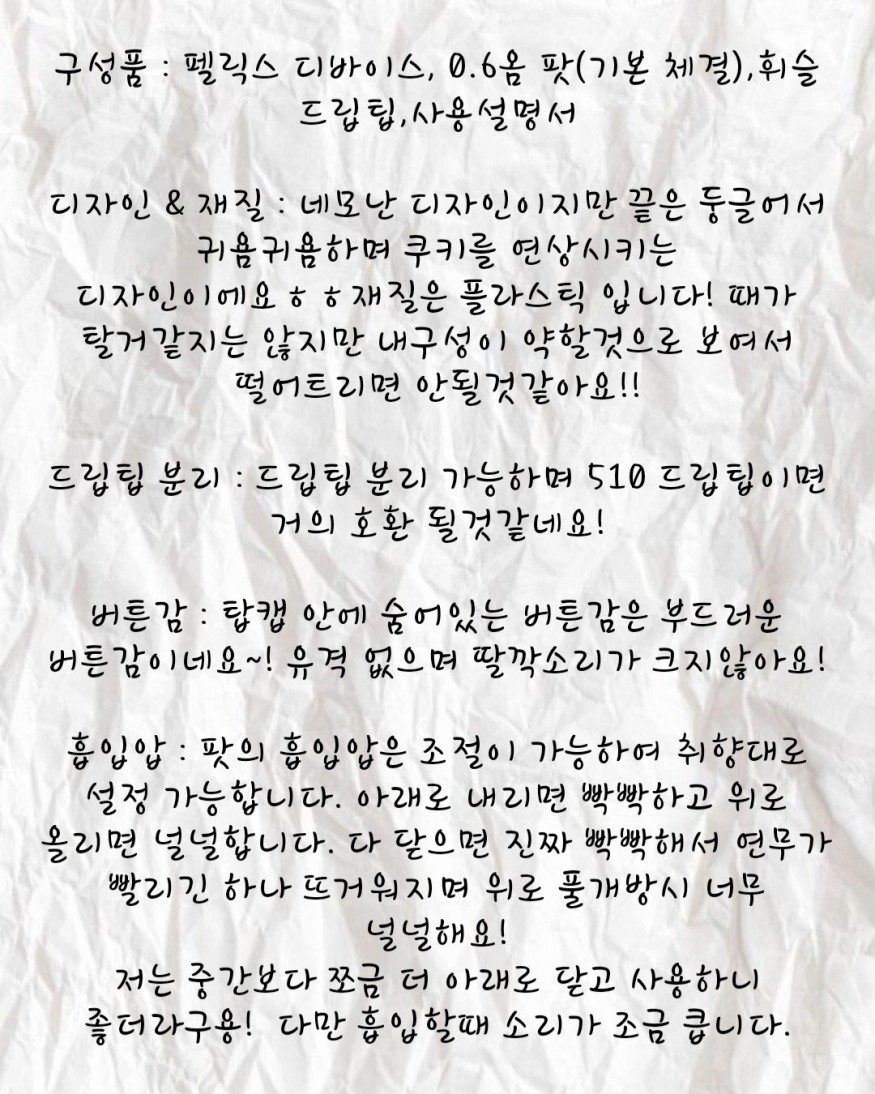 구성품 : 펠릭스 디바이스, 0.6옴 팟(기본 체결),휘슬
드립팁,사용설명서
디자인 & 재질 : 네모난 디자인이지만 끝은 둥글어서
귀욤귀욤하며 쿠키를 연상시키는
디자인이에요ㅎㅎ재질은 플라스틱 입니다! 때가
탈거같지는 않지만 내구성이 약할것으로 보여서
떨어트리면 안될것같아요!!
드립팁 분리 : 드립팁 분리 가능하며 510 드립팁이면
거의 호환 될것같네요!
버튼감 : 탑캡 안에 숨어있는 버튼감은 부드러운
버튼감이네요~! 유격 없으며 딸깍소리가 크지않아요!
흡입압 : 팟의 흡입압은 조절이 가능하여 취향대로
설정 가능합니다. 아래로 내리면 빡빡하고 위로
올리면 널널합니다. 다 닫으면 진짜 빡빡해서 연무가
빨리긴 하나 뜨거워지며 위로 풀개방시 너무
널널해요!
저는 중간보다 쪼금 더 아래로 닫고 사용하니
좋더라구용! 다만 흡입할때 소리가 조금 큽니다.